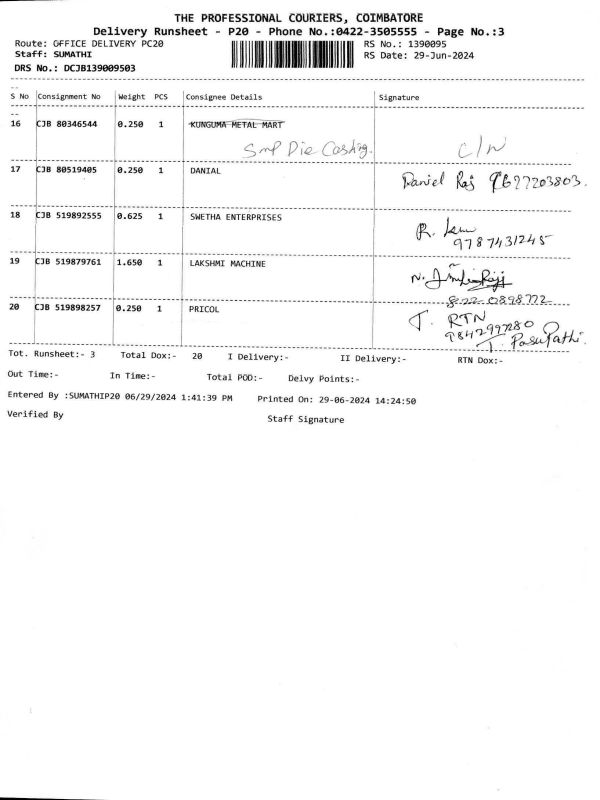 THE PROFESSIONAL COURIERS, COIMBATORE
Delivery Runsheet - P20 - Phone No.:0422-3505555 - Page No.:3
Route: OFFICE DELIVERY PC20 RS No.: 1390095
Staff: SUMATHI RS Date: 29-Jun-2024
DRS No.: DCJB139009503
S No Consignment No Weight PCS Consignee Details Signature
16 CJB 80346544 0.250 1 KUNGUMA METAL MART
Smp Die Casting. C/N
17 CJB 80519405 0.250 1 DANIAL
Daniel Raj 9677203803.
18 CJB 519892555 0.625 1 SWETHA ENTERPRISES
R.
9787431245
19 CJB 519879761 1.650 1 LAKSHMI MACHINE
N.
8220898772
20 CJB 519898257 0.250 1 PRICOL
T. RTN
9842997280
T. Pasupathi.
Tot. Runsheet:- 3 Total Dox:- 20 I Delivery:- II Delivery:- RTN Dox:-
Out Time:- In Time:- Total POD:- Delvy Points:-
Entered By :SUMATHIP20 06/29/2024 1:41:39 PM Printed On: 29-06-2024 14:24:50
Verified By Staff Signature